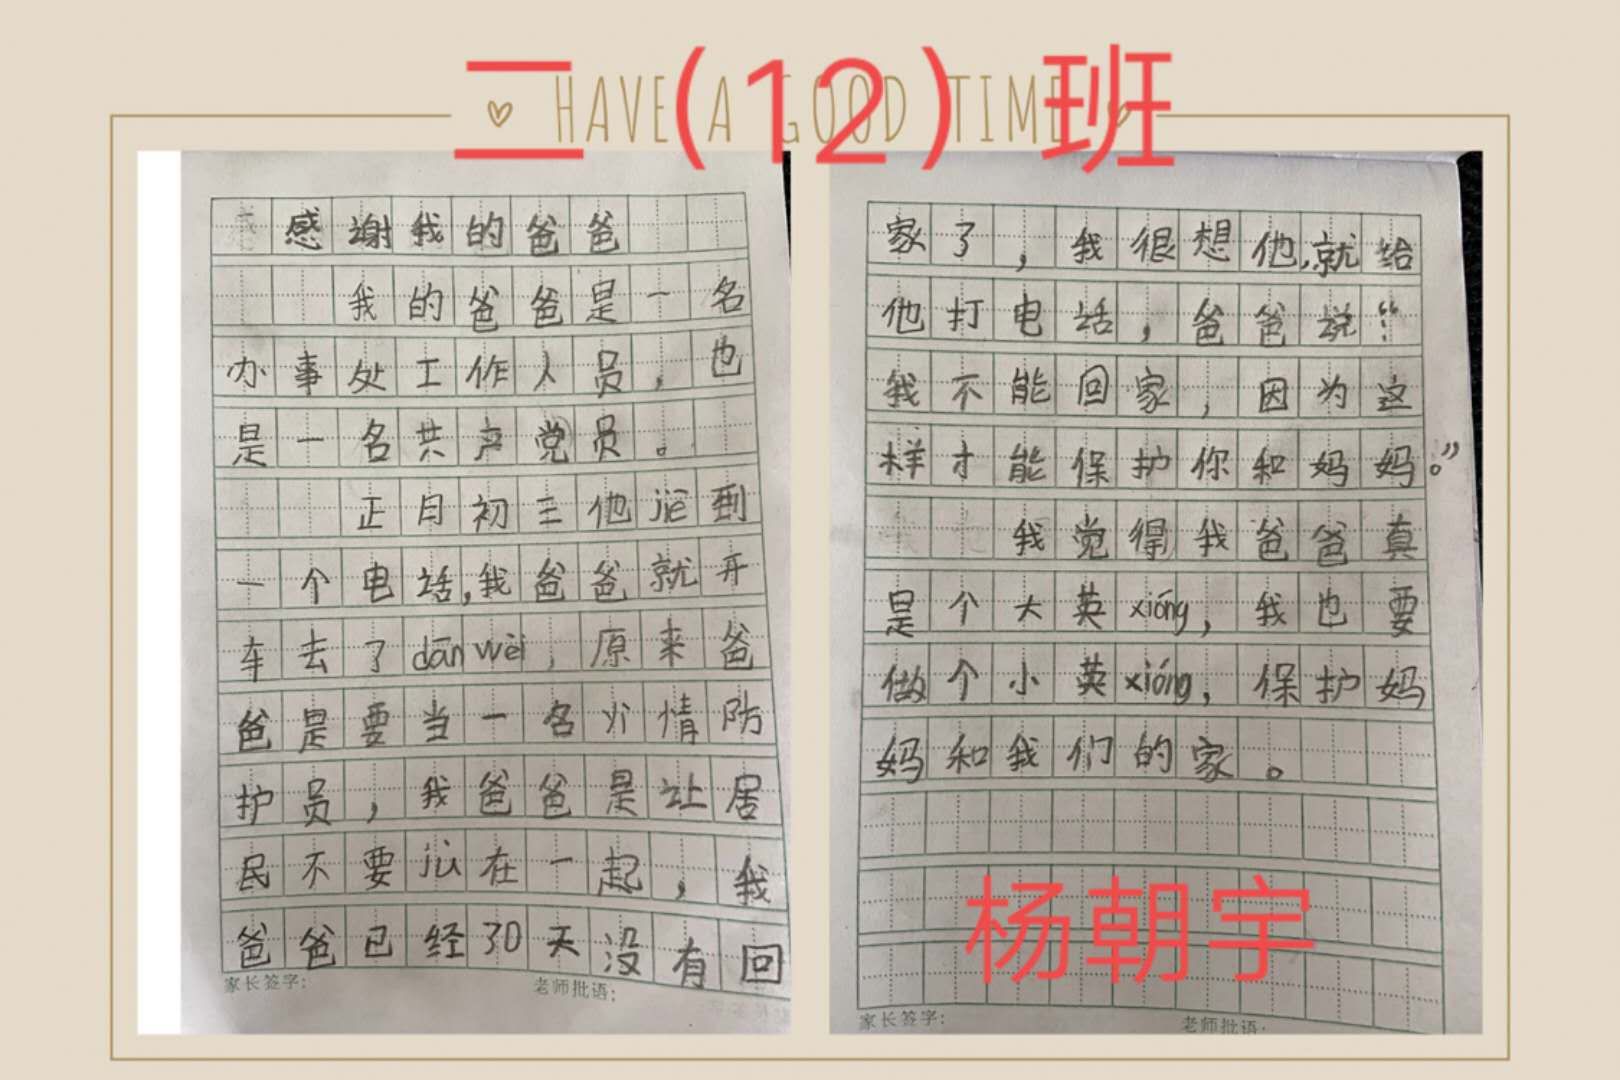 HAVE A GOOD TIME
二（12）班
感谢我的爸爸
我的爸爸是一名
办事处工作人员，也
是一名共产党员。
正月初三他jiē到
一个电话,我爸爸就开
车去了dān wèi，原来爸
爸是要当一名 情防
护员，我爸爸是让居
民不要jù在一起，我
爸爸已经30天没有回
家长签字：
老师批语：
家了，我很想他,就给
他打电话，爸爸说：“
我不能回家，因为这
样才能保护你和妈妈。”
我觉得我爸爸真
是个大英xióng，我也要
做个小英xióng，保护妈
妈和我们的家。
杨朝宇
家长签字：
老师批语：